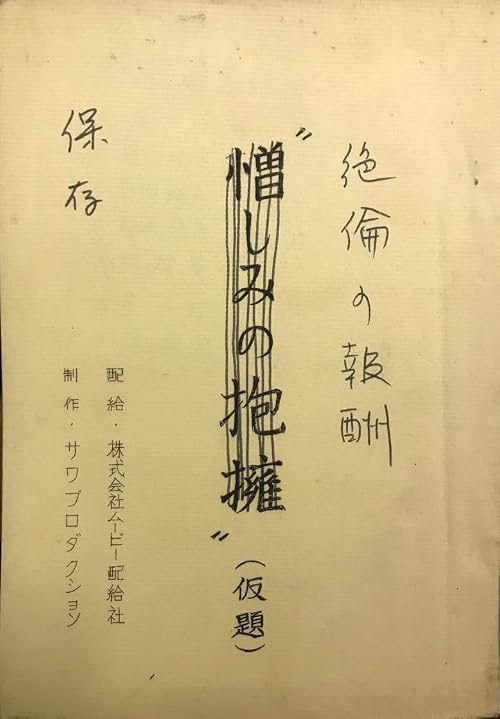 絶倫の報酬
〝憎しみの抱擁〟(仮題)
保存
配給・株式会社ムービー配給社
制作・サワプロダクション